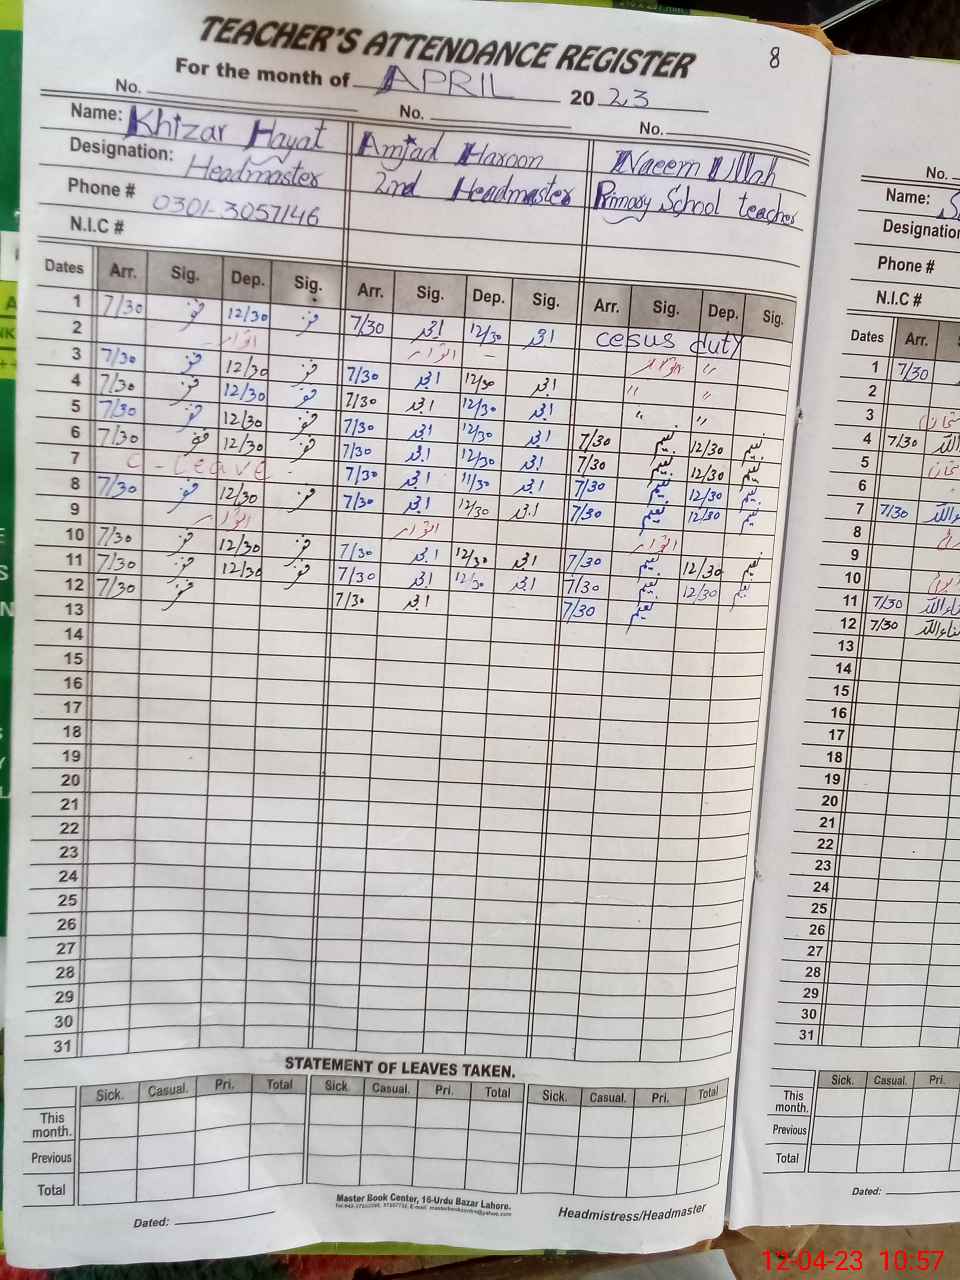 TEACHER'S ATTENDANCE REGISTER 8
For the month of APRIL 20 23
No. No. No.
Name: Khizar Hayat Amjad Haroon Naeem Ullah
Designation: Headmaster 2nd Headmaster Primary School teacher
Phone # 0301-3057146
N.I.C #
Dates Arr. Sig. Dep. Sig. Arr. Sig. Dep. Sig. Arr. Sig. Dep. Sig.
1 7/30 12/30 7/30 امجد 12/30 امجد cesus duty
2 اتوار اتوار اتوار "
3 7/30 12/30 7/30 امجد 12/30 امجد " "
4 7/30 12/30 7/30 امجد 12/30 امجد " "
5 7/30 12/30 7/30 امجد 12/30 امجد 7/30 نعیم 12/30 نعیم
6 7/30 12/30 7/30 امجد 12/30 امجد 7/30 نعیم 12/30 نعیم
7 C-Leave 7/30 امجد 11/30 امجد 7/30 نعیم 12/30 نعیم
8 7/30 12/30 7/30 امجد 12/30 امجد 7/30 نعیم 12/30 نعیم
9 اتوار اتوار اتوار
10 7/30 12/30 7/30 امجد 12/30 امجد 7/30 نعیم 12/30 نعیم
11 7/30 12/30 7/30 امجد 12/30 امجد 7/30 نعیم 12/30 نعیم
12 7/30 7/30 امجد 7/30 نعیم
13
14
15
16
17
18
19
20
21
22
23
24
25
26
27
28
29
30
31
STATEMENT OF LEAVES TAKEN.
Sick. Casual. Pri. Total Sick. Casual. Pri. Total Sick. Casual. Pri. Total
This month.
Previous
Total
Master Book Center, 16-Urdu Bazar Lahore.
Dated: Headmistress/Headmaster
No.
Name:
Designation
Phone #
N.I.C #
Dates Arr.
1 7/30
2
3
4 7/30
5
6
7 7/30
8
9
10
11 7/30 ثناءاللہ
12 7/30 ثناءاللہ
13
14
15
16
17
18
19
20
21
22
23
24
25
26
27
28
29
30
31
Sick. Casual. Pri.
This month.
Previous
Total
Dated:
12-04-23 10:57